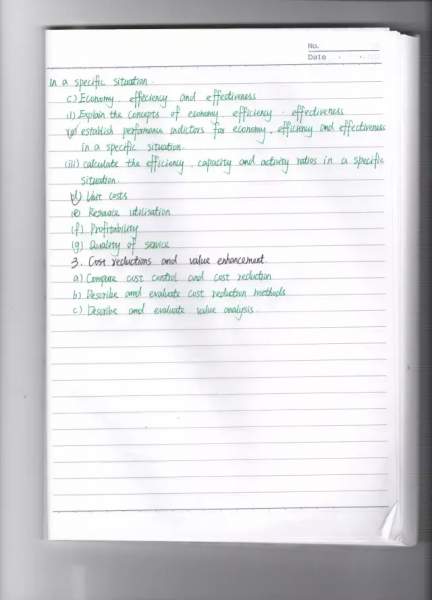 No.
Date
in a specific situation.
c) Economy, effeciency and effectiveness
i) Explain the concepts of economy, efficiency, effectiveness
establish perfomance indictors for economy, efficieny and effectiveness
in a specific situation.
(iii) calculate the efficiency, capacity and activity ratios in a specific
situation.
d) Unit costs
(e) Resource utilisation
(f) Profitability
(g) Quality of service
3. Cost reductions and value enhancement.
a) Compare cost control and cost reduction
b) Describe and evaluate cost reduction methods
c) Describe and evaluate value analysis